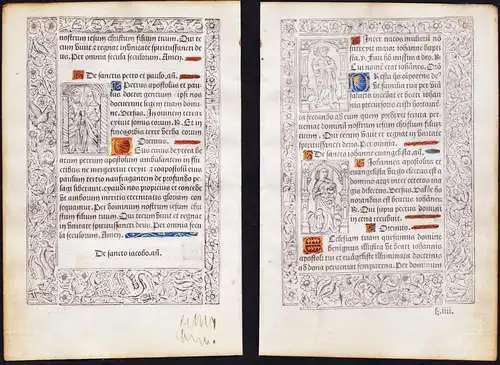 nostrum iesum christum filium tuum. Qui te
cum viuit et regnat in vnitate spiritussancti de
us. Per omnia secula seculorum. Amen.
De sanctis petro et paulo. añ.
Petrus apostolus et pau
lus doctor gentium ipsi nos
docuerunt legem tuam domi
ne. Versus. In omnem terram
exiuit sonus eorum. R. Et in
fines orbis terre verba eorum
Oremus.
Deus cuius dextera be
atum petrum apostolum ambulantem in flu
ctibus ne mergeretur erexit et coapostolū eius
paulum tertio naufragantem de profundo pe
lagi liberauit. exaudi nos propicius et concede
vt amborum meritis eternitatis gloriam con
sequamur. Per dominum nostrum iesum chri
stum filium tuum. Qui tecum viuit et regnat
in vnitate spiritussancti deus. Per omnia secu
la seculorum. Amen.
De sancto iacobo. añ.
Inter natos mulierū nō
surrexit maior iohanne baptis
ta. V. Fuit hō missus a deo
R. Cui nomē erat iohānes.
Oremus
Presta q̄s oīpotens de
us vt familia tua per viā
salutis incedat et beati iohānis
precursoris
secura perueniat. Per dominum
nostrum iesum christum filium tuum.
Qui tecum viuit et regnat in vnitate
spiritussancti deus. Per omnia.
De sancto iohanne euangelista. añ.
Iohannes apostolus et
euangelista virgo electus est a
domino atque inter ceteros ma
gis dilectus. Versus. Valde ho
norandus est beatus iohannes
R. Qui supra pectus domini
in cena recubuit.
Oremus.
Ecclesiam tuam quesumus domine
benignus illustra vt beati iohannis
apostoli tui et euangeliste illuminata doctrinis
ad dona perueniat sempiterna. Per dominum